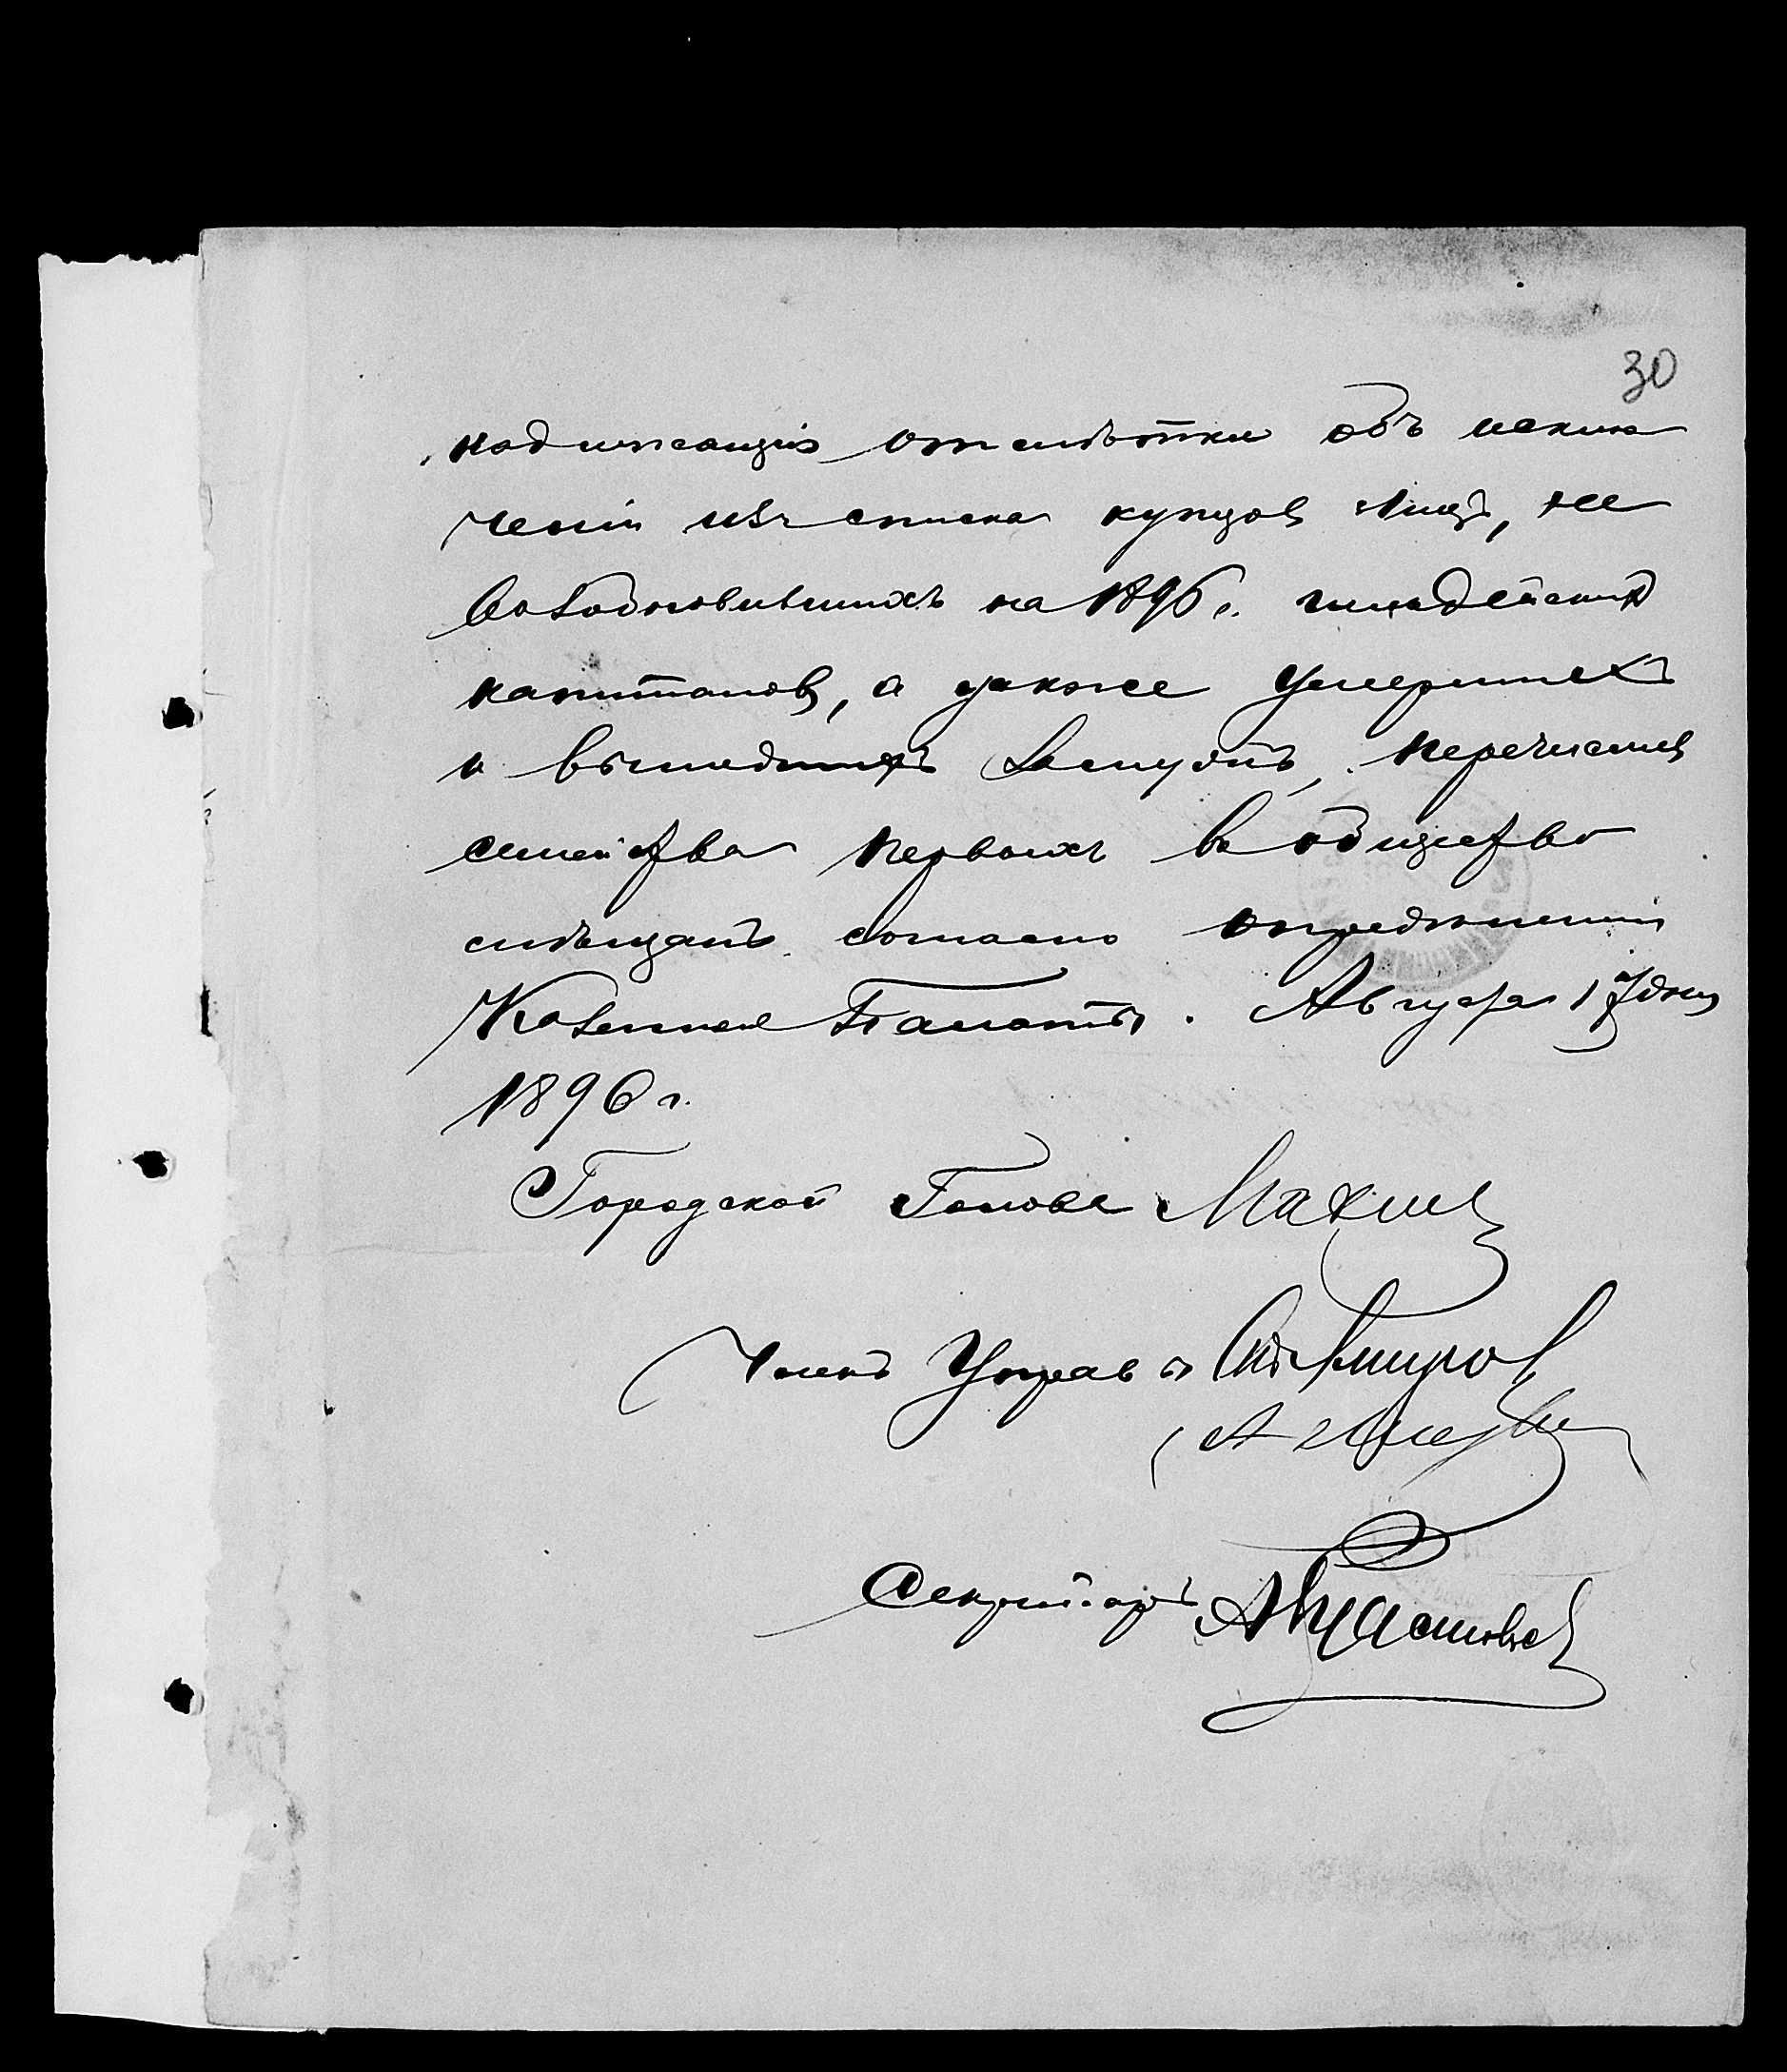 30
надлежащiя отмѣтки объ исклю
ченiи изъ списка купцовъ лицъ, не
возобновившихъ на 1896 г. гильдейскихъ
капиталовъ, а также умершихъ
и вышедшихъ замужъ, перечисливъ
семейства первыхъ въ общество
мѣщанъ согласно опредѣленiй
Казенной Палаты. Августа 17 дня
1896 г.
Городской Голова
Членъ Управы
Секретарь